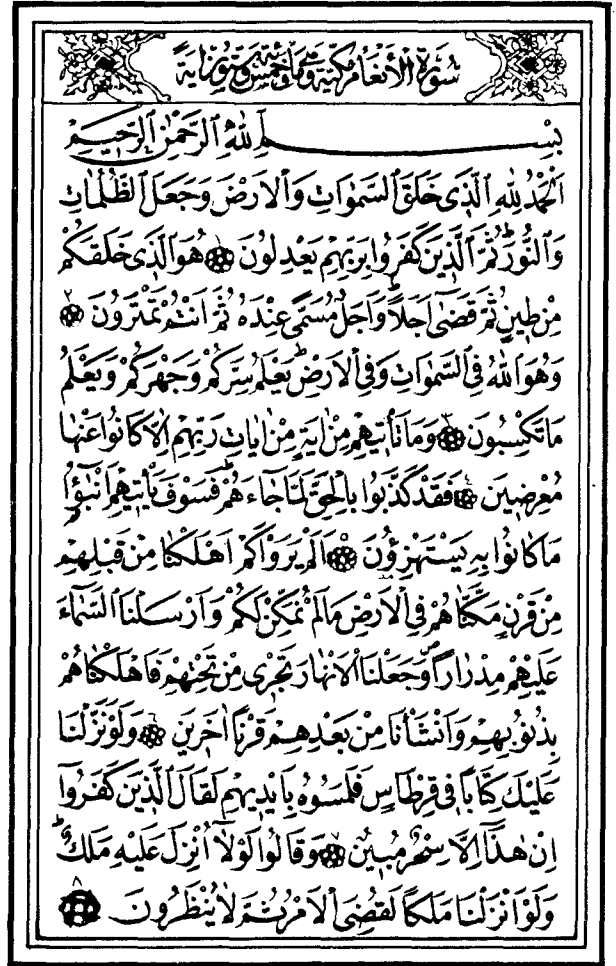 سُورَةُ الْاَنْعَامِ مَكِّيَّةٌ وَهِيَ مِائَةٌ وَخَمْسٌ وَسِتُّونَ اٰيَةً
بِسْمِ اللّٰهِ الرَّحْمٰنِ الرَّحِيمِ
اَلْحَمْدُ لِلّٰهِ الَّذِى خَلَقَ السَّمٰوَاتِ وَالْاَرْضَ وَجَعَلَ الظُّلُمَاتِ
وَالنُّورَۜ ثُمَّ الَّذِينَ كَفَرُوا بِرَبِّهِمْ يَعْدِلُونَ ﴿١﴾ هُوَ الَّذِى خَلَقَكُمْ
مِنْ طِينٍ ثُمَّ قَضٰى اَجَلًاۜ وَاَجَلٌ مُسَمًّى عِنْدَهُ ثُمَّ اَنْتُمْ تَمْتَرُونَ ﴿٢﴾
وَهُوَ اللّٰهُ فِى السَّمٰوَاتِ وَفِى الْاَرْضِۜ يَعْلَمُ سِرَّكُمْ وَجَهْرَكُمْ وَيَعْلَمُ
مَا تَكْسِبُونَ ﴿٣﴾ وَمَا تَأْتِيهِمْ مِنْ اٰيَةٍ مِنْ اٰيَاتِ رَبِّهِمْ اِلَّا كَانُوا عَنْهَا
مُعْرِضِينَ ﴿٤﴾ فَقَدْ كَذَّبُوا بِالْحَقِّ لَمَّا جَٓاءَهُمْۜ فَسَوْفَ يَأْتِيهِمْ اَنْبٰٓؤُا
مَا كَانُوا بِهِ يَسْتَهْزِؤُنَ ﴿٥﴾ اَلَمْ يَرَوْا كَمْ اَهْلَكْنَا مِنْ قَبْلِهِمْ
مِنْ قَرْنٍ مَكَّنَّاهُمْ فِى الْاَرْضِ مَا لَمْ نُمَكِّنْ لَكُمْ وَاَرْسَلْنَا السَّمَٓاءَ
عَلَيْهِمْ مِدْرَارًاۖ وَجَعَلْنَا الْاَنْهَارَ تَجْرِى مِنْ تَحْتِهِمْ فَاَهْلَكْنَاهُمْ
بِذُنُوبِهِمْ وَاَنْشَأْنَا مِنْ بَعْدِهِمْ قَرْنًا اٰخَرِينَ ﴿٦﴾ وَلَوْ نَزَّلْنَا
عَلَيْكَ كِتَابًا فِى قِرْطَاسٍ فَلَمَسُوهُ بِاَيْدِيهِمْ لَقَالَ الَّذِينَ كَفَرُٓوا
اِنْ هٰذَٓا اِلَّا سِحْرٌ مُبِينٌ ﴿٧﴾ وَقَالُوا لَوْلَٓا اُنْزِلَ عَلَيْهِ مَلَكٌۜ
وَلَوْ اَنْزَلْنَا مَلَكًا لَقُضِىَ الْاَمْرُ ثُمَّ لَا يُنْظَرُونَ ﴿٨﴾